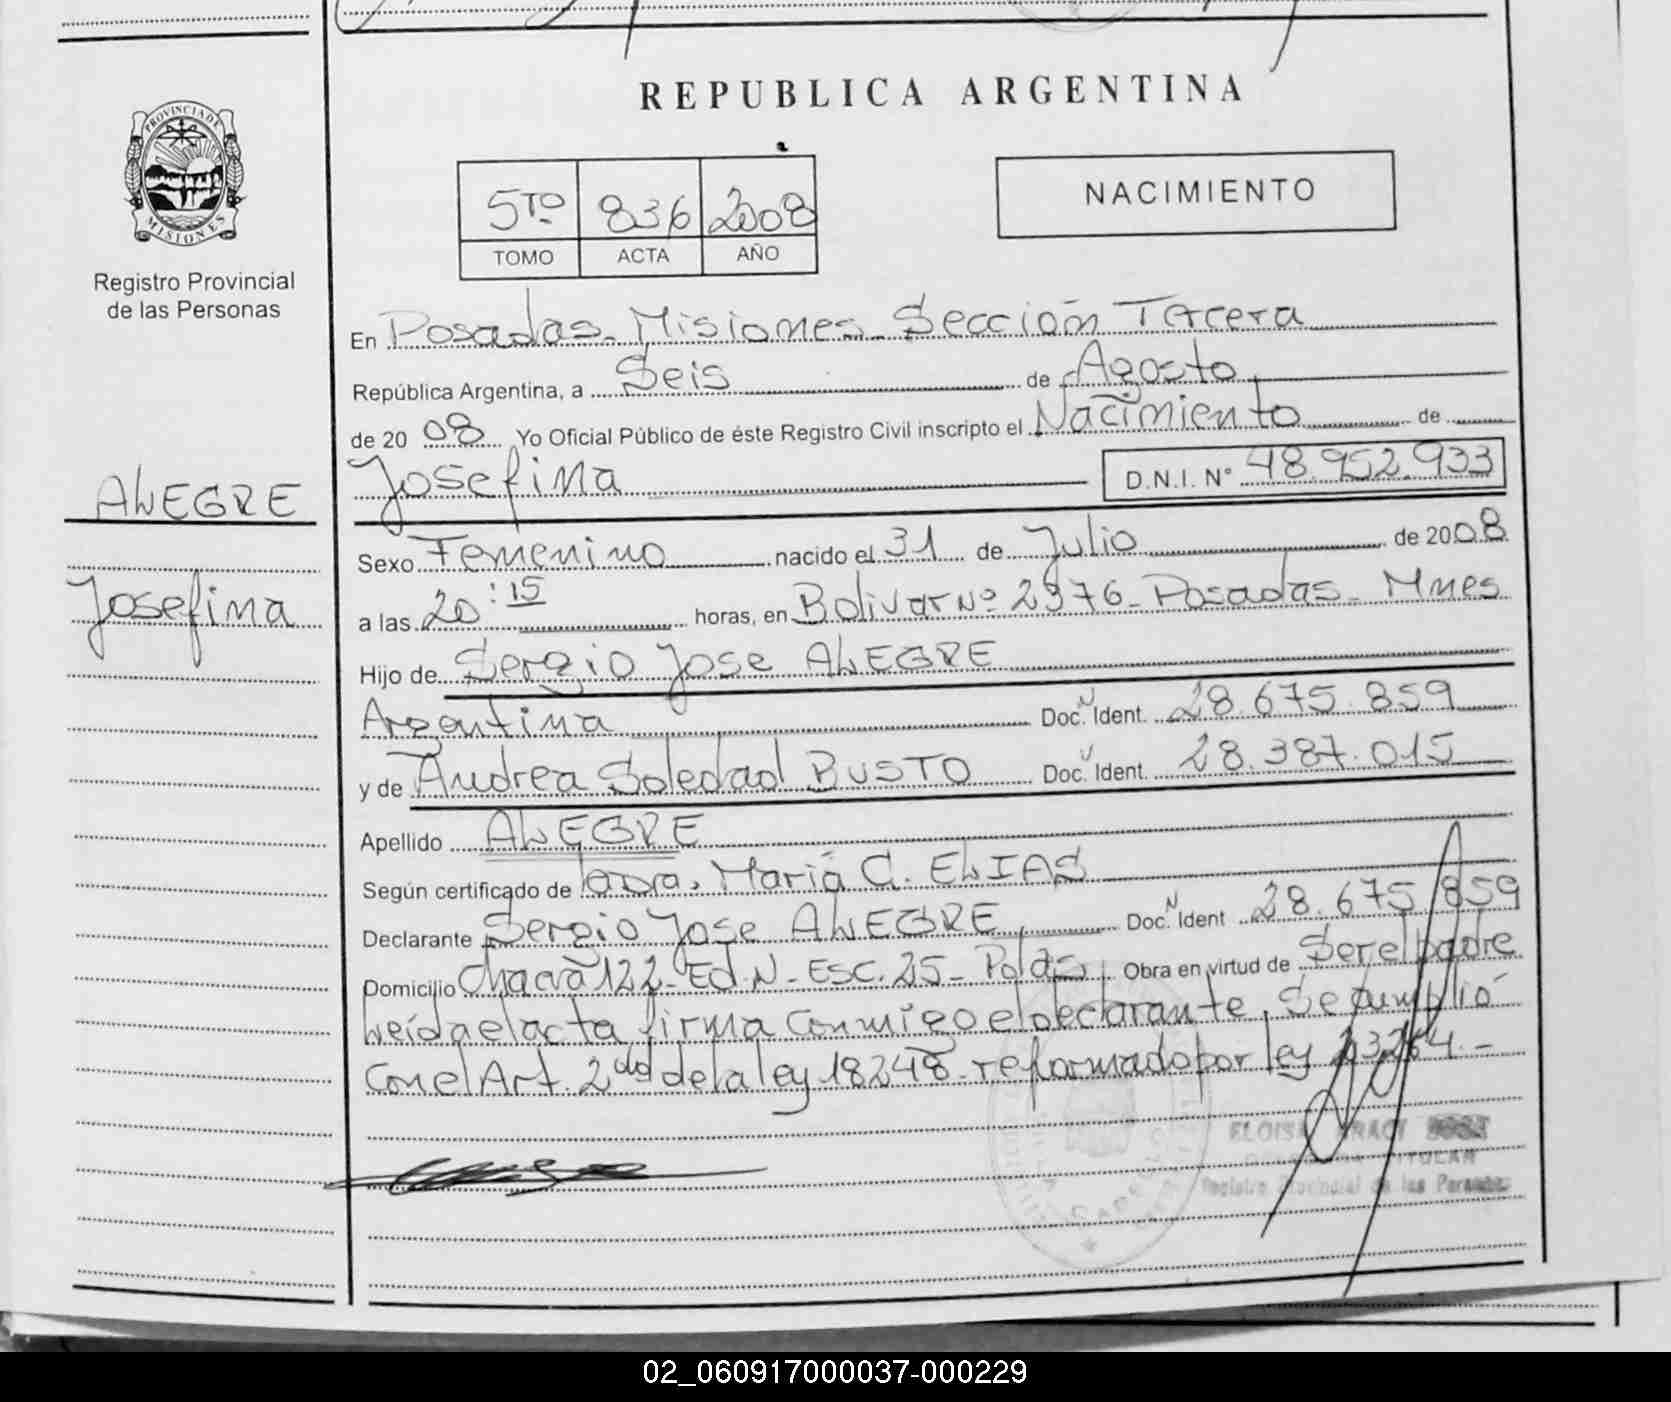 REPUBLICA ARGENTINA
PROVINCIA DE
MISIONES
Registro Provincial
de las Personas
5TO 836 2008
TOMO ACTA AÑO
NACIMIENTO
En Posadas - Misiones - Sección Tercera
República Argentina, a Seis de Agosto
de 20 08 Yo Oficial Público de éste Registro Civil inscripto el Nacimiento de
Josefina D.N.I. N° 48.952.933
ALEGRE
Josefina
Sexo Femenino nacido el 31 de Julio de 2008
a las 20:15 horas, en Bolivar Nº 2376 - Posadas - Mnes
Hijo de Sergio Jose ALEGRE
Argentina Doc. Ident. 28.675.859
y de Andrea Soledad BUSTO Doc. Ident. 28.387.015
Apellido ALEGRE
Según certificado de Maria C. ELIAS
Declarante Sergio Jose ALEGRE Doc. Ident 28.675.859
Domicilio 122 - Ed. N - Esc. 25 - Obra en virtud de Ser el padre
Leída el acta firma conmigo el declarante, Se cumplió
Con el Art. 2do de la ley 18248 - reformado por ley
TITULAR
Registro Provincial de las Personas
02_060917000037-000229